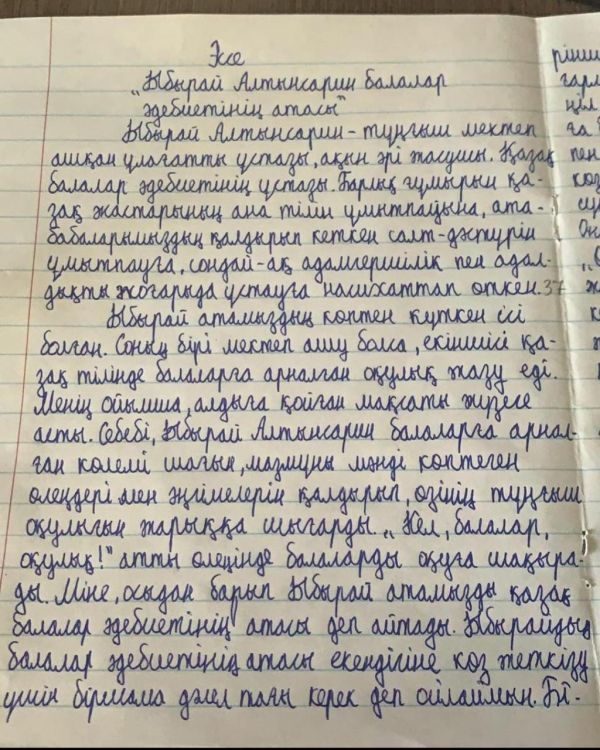 Эссе
„Ыбырай Алтынсарин балалар
әдебиетінің атасы"
Ыбырай Алтынсарин - тұңғыш мектеп
ашқан ұлағатты ұстазы, ақын әрі жазушы. Қазақ
балалар әдебиетінің ұстазы. Барлық ғұмырын қа-
зақ жастарының ана тілін ұмытпауына, ата-
бабаларымыздың қалдырып кеткен салт-дәстүрін
ұмытпауға, сондай-ақ адамгершілік пен адал-
дықты жоғарыда ұстауға насихаттап өткен. 37
Ыбырай атамыздың көптен күткен ісі
болған. Соның бірі мектеп ашу болса, екіншісі қа-
зақ тілінде балаларға арналған оқулық жазу еді.
Менің ойымша, алдыға қойған мақсаты жүзеге
асты. Себебі, Ыбырай Алтынсарин балаларға арнал-
ған көлемі шағын, мазмұны мәнді көптеген
өлеңдері мен әңгімелерін қалдырып, өзінің тұңғыш
оқулығын жарыққа шығарды. „Кел, балалар,
оқулық!" атты өлеңінде балаларды оқуға шақыра-
ды. Міне, осыдан барып Ыбырай атамызды қазақ
балалар әдебиетінің атасы деп айтады. Ыбырайдың
балалар әдебиетінің атасы екендігіне көз жеткізу
үшін біршама дәлел тағы керек деп ойлаймын. Бі-